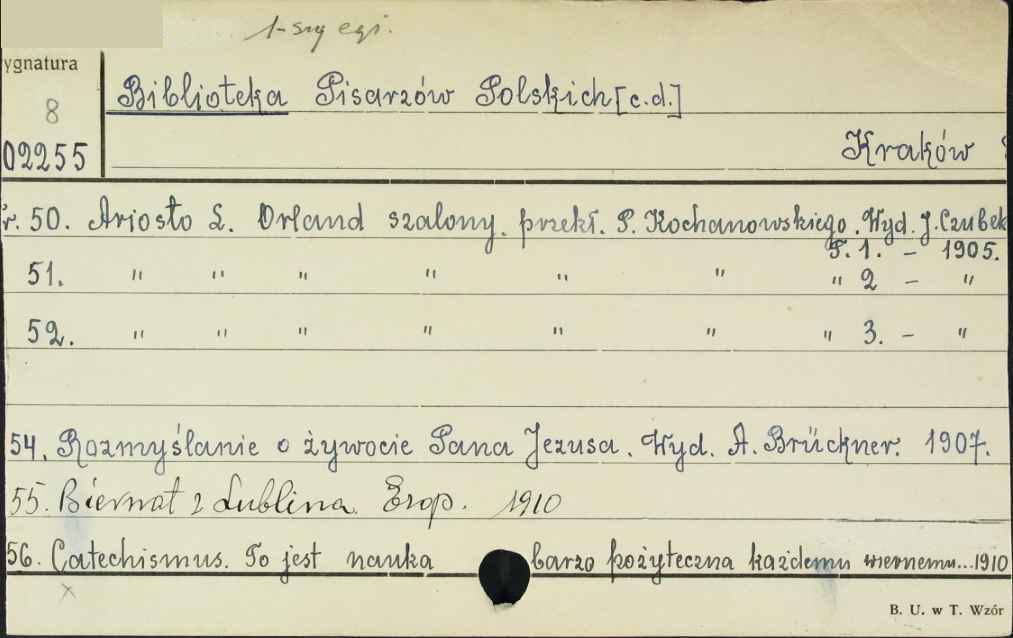 1-szy egz.
ygnatura
8
02255
Biblioteka Pisarzów Polskich [c.d.]
Kraków
r. 50. Ariosto L. Orland szalony. przekł. P. Kochanowskiego. Wyd. J. Czubek
T. 1. - 1905.
51. " " " " " " " 2 - "
52. " " " " " " " 3. - "
54. Rozmyślanie o żywocie Pana Jezusa. Wyd. A. Brückner. 1907.
55. Biernat z Lublina. Ezop. 1910
56. Catechismus. To jest nauka barzo pożyteczna każdemu wiernemu...1910
x
B. U. w T. Wzór